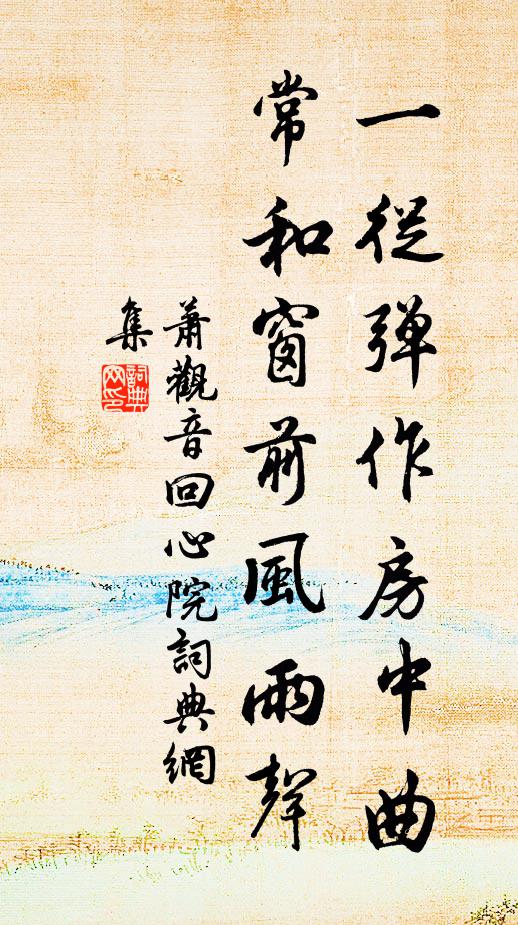 一從弹作房中曲
常和窗前風雨聲
蕭觀音回心院詞典網
集
詞典
网印